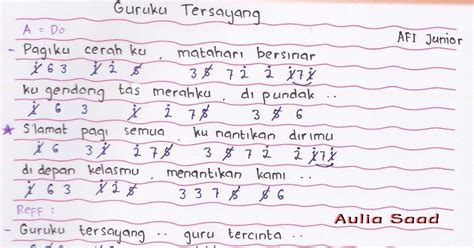 Guruku Tersayang
A = Do
AFI Junior
- Pagiku cerahku, matahari bersinar
1̸ 6 3 1̸ 2 5̸ 3 5̸ 7 2 2 1̸71̸
ku gendong tas merahku, di pundak ..
1̸ 6 3 1̸ 2 7 5̸ 3 5̸ 6
★ S'lamat pagi semua, ku nantikan dirimu
1̸ 6 3 1̸ 2 7 5̸ 3 5̸ 7 2 2 1̸71̸
di depan kelasmu, menantikan kami ..
1̸ 6 3 1̸ 2 5̸ 3 3 7 5̸ 5̸ 6
Reff :
Aulia Saad
- Guruku tersayang .. guru tercinta ..